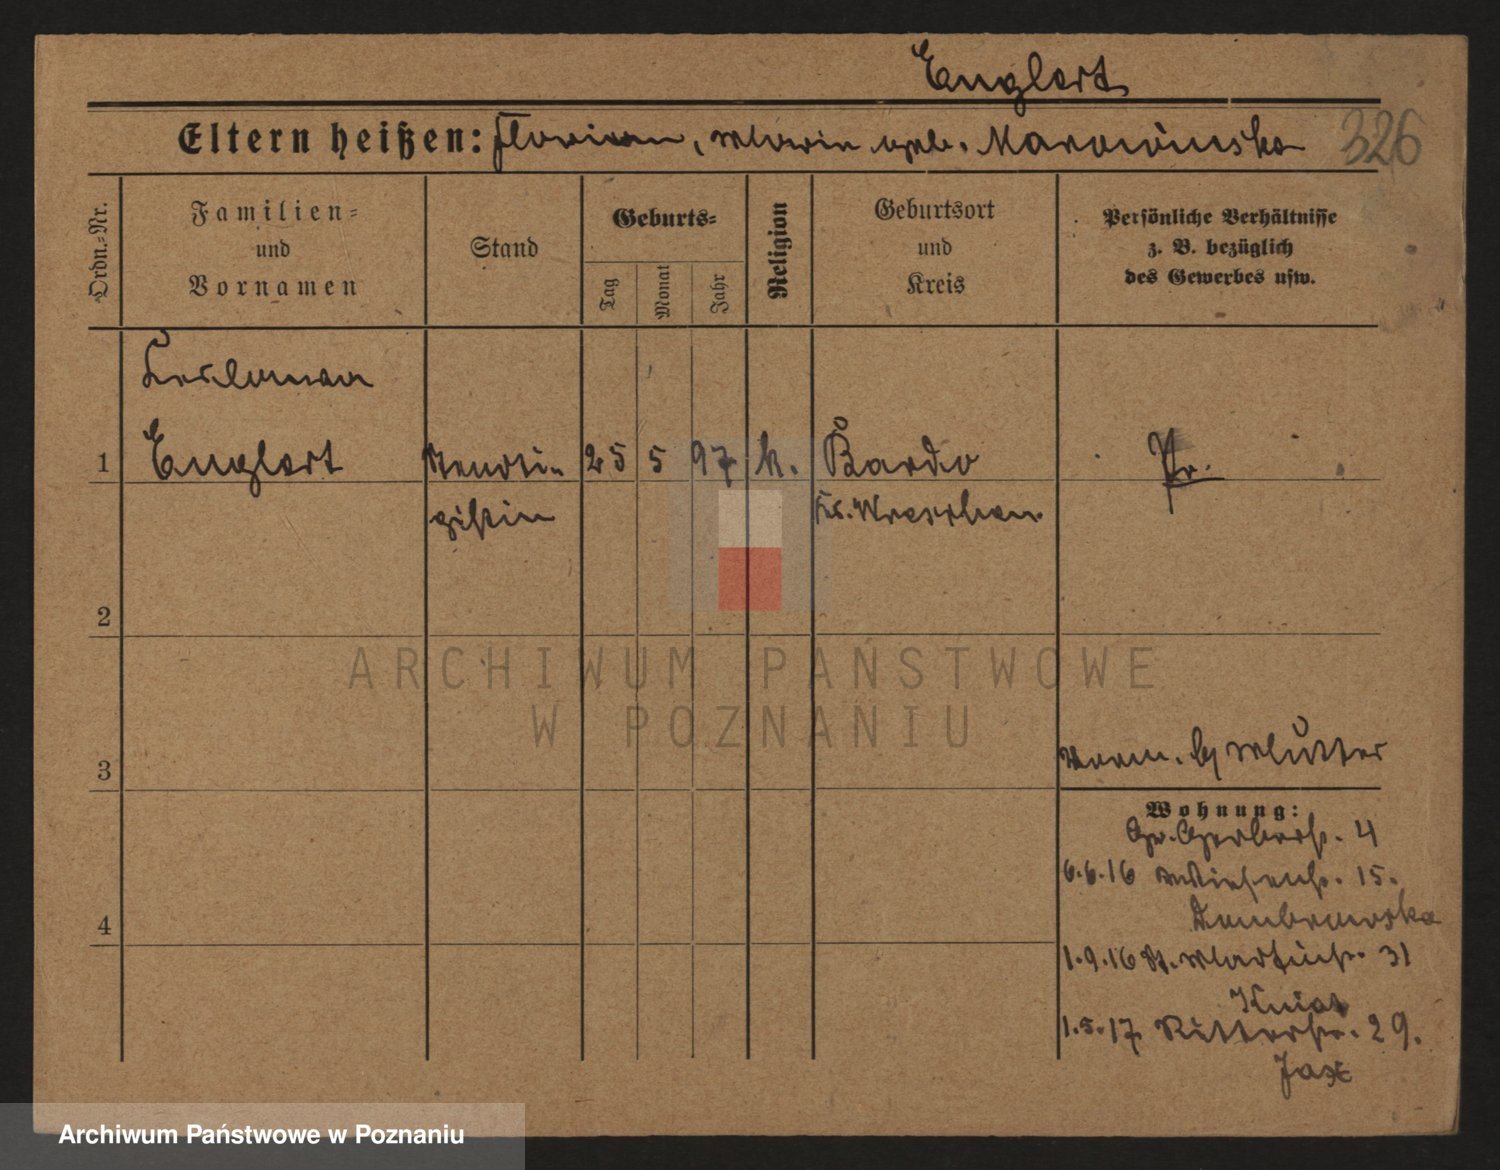 Englert
Eltern heißen: Florian, Maria geb. Marowinska
326
Ordn.-Nr.
Familien- und Vornamen
Stand
Geburts-
Tag
Monat
Jahr
Religion
Geburtsort und Kreis
Persönliche Verhältnisse z. B. bezüglich des Gewerbes usw.
1
Englert
25 5 97 k. Bardo
Pr.
Kr. Wreschen
2
ARCHIWUM PAŃSTWOWE
W POZNANIU
3
Mutter
Wohnung:
Gr. Gerberstr. 4
6.6.16 Wiesenstr. 15.
Dombrowska
4
1.9.16 St. Martinstr. 31
1.5.17 Ritterstr. 29.
Archiwum Państwowe w Poznaniu